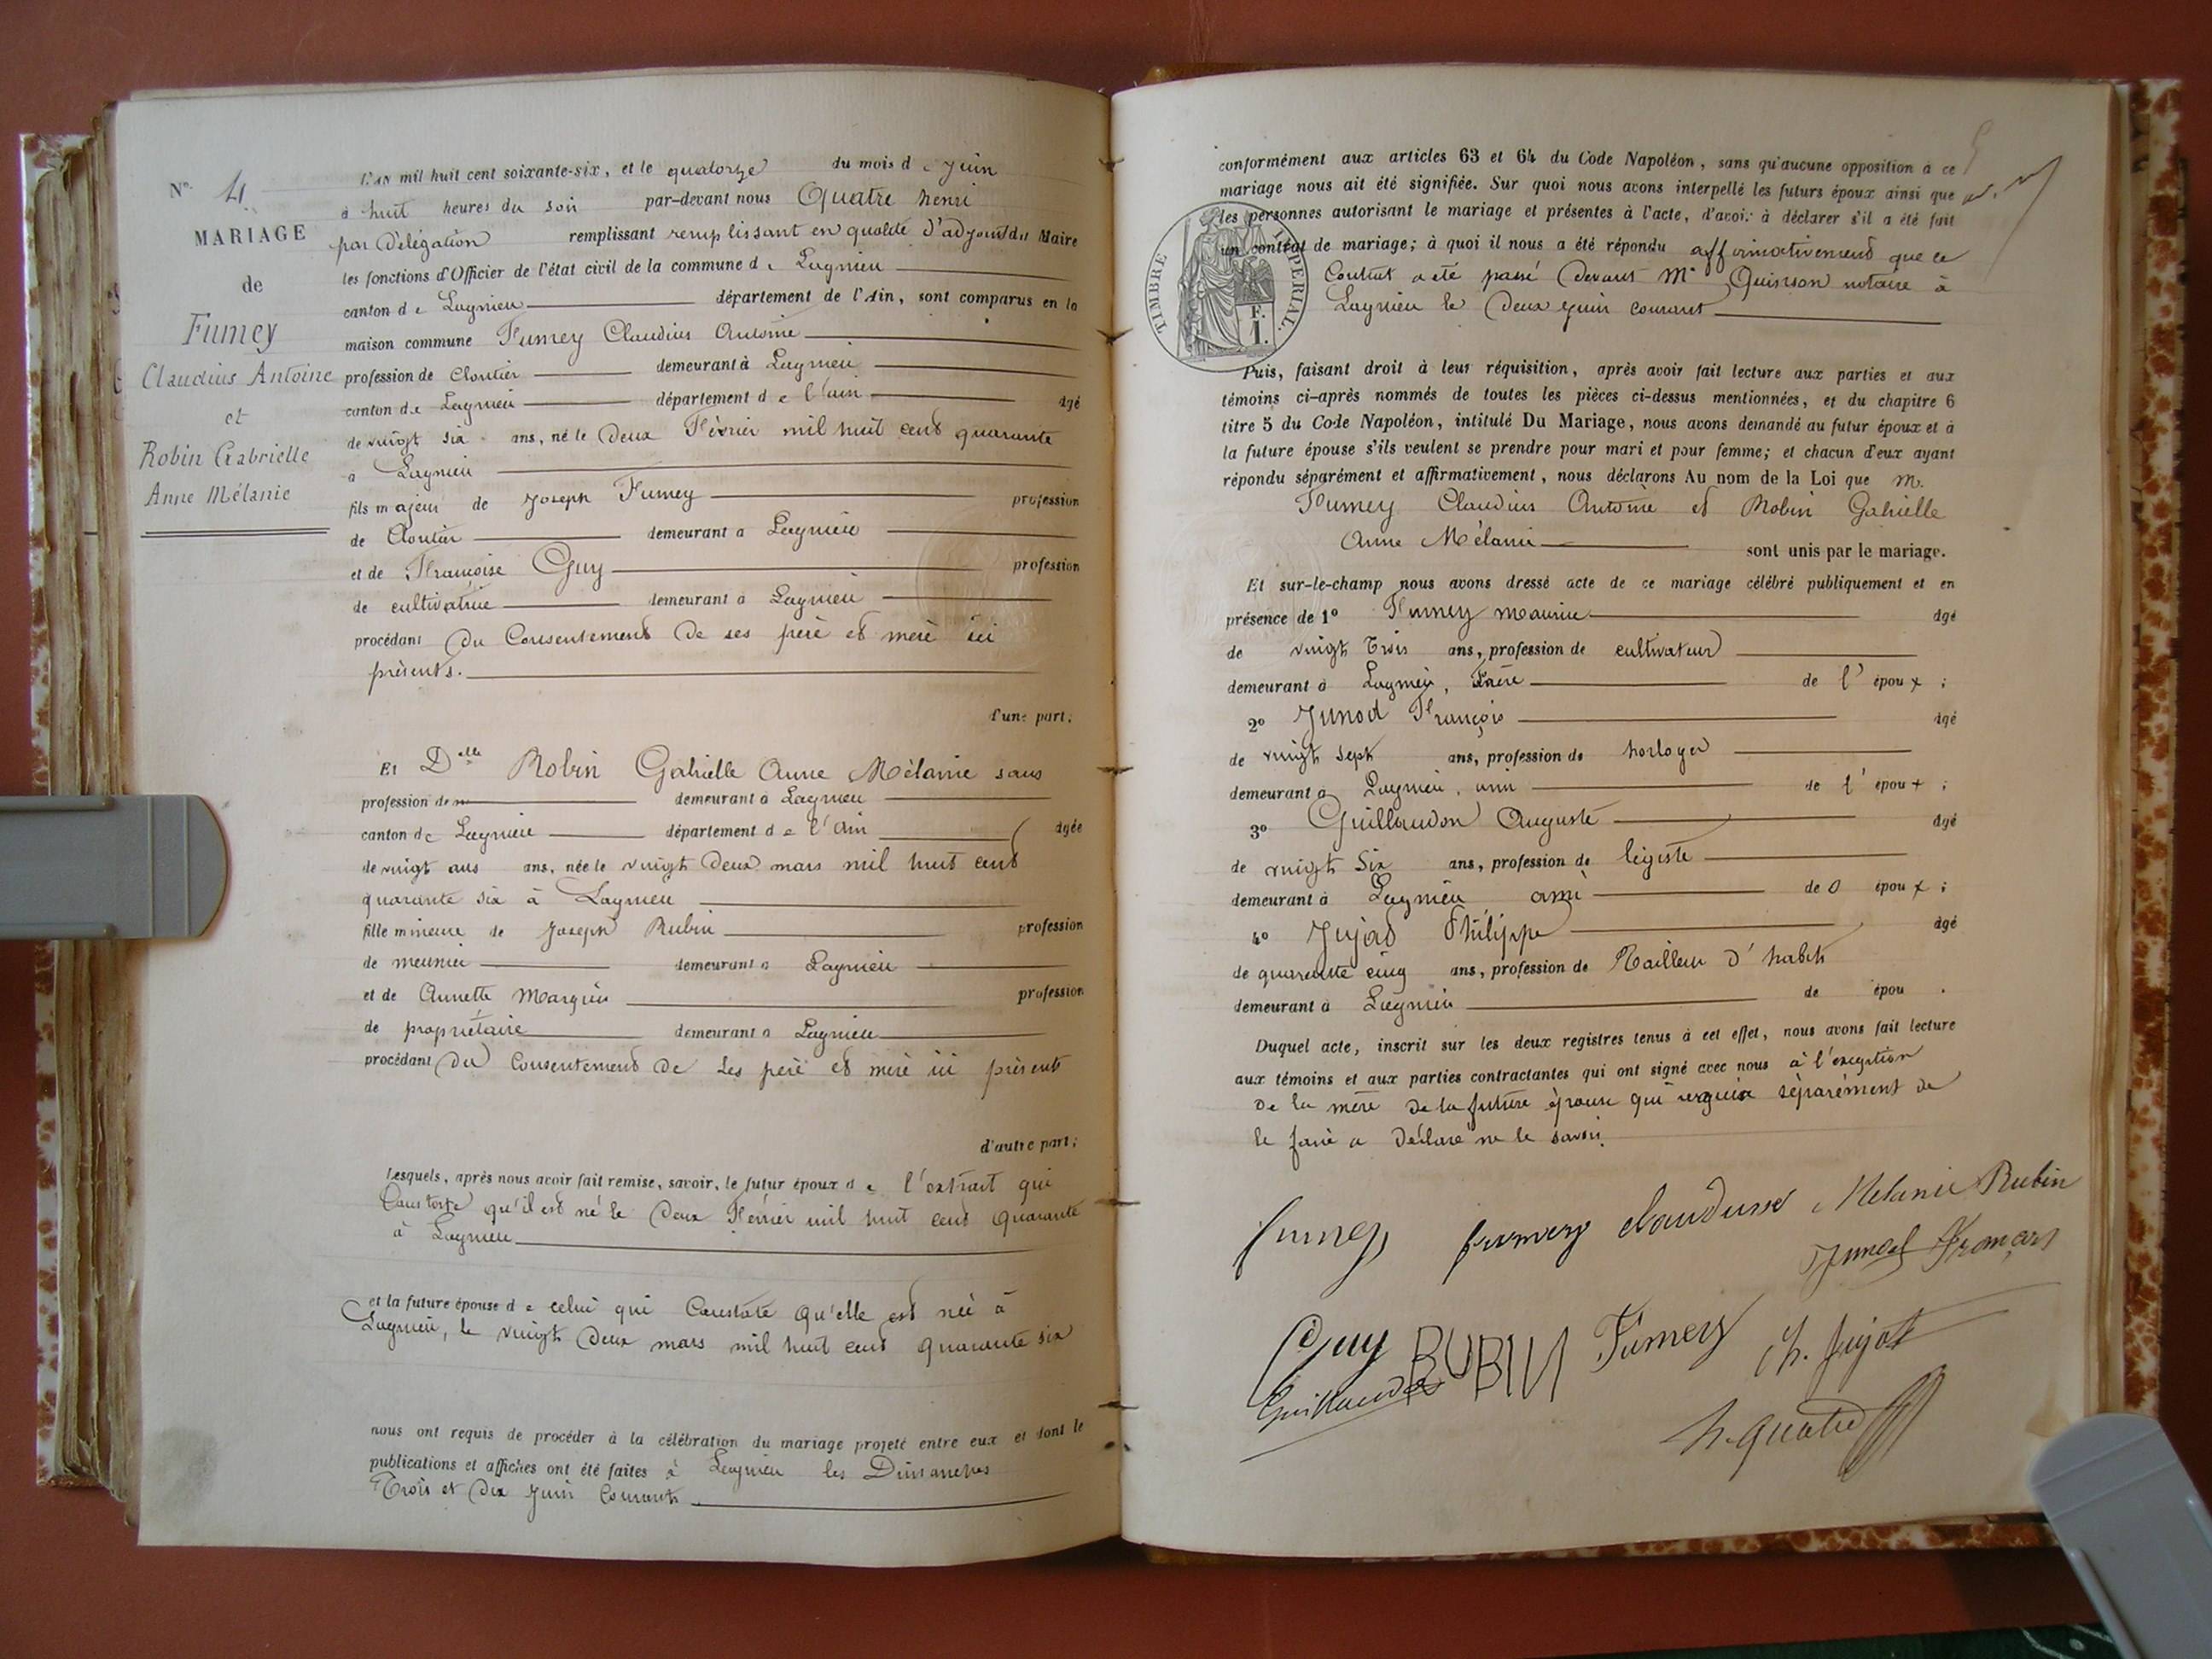 N° 4
MARIAGE
de
Fumey
Claudius Antoine
et
Robin Gabrielle
Anne Mélanie
L'AN mil huit cent soixante-six, et le quatorze du mois de Juin
à huit heures du soir par-devant nous Quatre henri
par Délégation remplissant remplissant en qualité d'adjoint du Maire
les fonctions d'Officier de l'état civil de la commune de Lagnieu
canton de Lagnieu département de l'Ain, sont comparus en la
maison commune Fumey Claudius Antoine
profession de Cloutier demeurant à Lagnieu
canton de Lagnieu département de l'ain âgé
de vingt six ans, né le Deux Février mil huit cent quarante
à Lagnieu
fils majeur de Joseph Fumey profession
de Cloutier demeurant à Lagnieu
et de Françoise Guy profession
de cultivatrice demeurant à Lagnieu
procédant du Consentement de ses père et mère ici
présents.
d'une part;
Et Delle Robin Gabrielle Anne Mélanie sans
profession de demeurant à Lagnieu
canton de Lagnieu département de l'Ain âgée
de vingt ans ans, née le vingt Deux mars mil huit cent
quarante six à Lagnieu
fille mineure de Joseph Rubin profession
de meunier demeurant à Lagnieu
et de Annette Marguin profession
de propriétaire demeurant à Lagnieu
procédant du Consentement de ses père et mère ici présents
d'autre part;
Lesquels, après nous avoir fait remise, savoir, le futur époux de l'extrait qui
Constate qu'il est né le Deux Février mil huit cent quarante
à Lagnieu
et la future épouse de celui qui Constate qu'elle est née à
Lagnieu, le vingt Deux mars mil huit cent quarante six
nous ont requis de procéder à la célébration du mariage projeté entre eux et dont le
publications et affiches ont été faites à Lagnieu les Dimanches
Trois et Dix Juin Courant
conformément aux articles 63 et 64 du Code Napoléon, sans qu'aucune opposition à ce
mariage nous ait été signifiée. Sur quoi nous avons interpellé les futurs époux ainsi que
les personnes autorisant le mariage et présentes à l'acte, d'avoir à déclarer s'il a été fait
un contrat de mariage; à quoi il nous a été répondu affirmativement que ce
Contrat a été passé Devant Me Quinson notaire à
Lagnieu le Deux Juin courant
TIMBRE IMPERIAL.
F.
1.
Puis, faisant droit à leur réquisition, après avoir fait lecture aux parties et aux
témoins ci-après nommés de toutes les pièces ci-dessus mentionnées, et du chapitre 6
titre 5 du Code Napoléon, intitulé Du Mariage, nous avons demandé au futur époux et à
la future épouse s'ils veulent se prendre pour mari et pour femme; et chacun d'eux ayant
répondu séparément et affirmativement, nous déclarons Au nom de la Loi que M.
Fumey Claudius Antoine et Robin Gabrielle
Anne Mélanie sont unis par le mariage.
Et sur-le-champ nous avons dressé acte de ce mariage célébré publiquement et en
présence de 1° Fumey Maurice âgé
de vingt Trois ans, profession de cultivateur
demeurant à Lagnieu, Frère de l'époux;
2° Junod François âgé
de vingt sept ans, profession de horloger
demeurant à Lagnieu, ami de l'époux;
3° Guillaudon Auguste âgé
de vingt six ans, profession de légiste
demeurant à Lagnieu ami de époux;
4° Jujat Philippe âgé
de quarante cinq ans, profession de Tailleur d'habits
demeurant à Lagnieu de épou .
Duquel acte, inscrit sur les deux registres tenus à cet effet, nous avons fait lecture
aux témoins et aux parties contractantes qui ont signé avec nous à l'exception
de la mère de la future épouse qui requise séparément de
le faire a Déclaré ne le savoir.
fumey fumey claudusse Mélanie Rubin
Junod François
Guy RUBIN Fumey Ph. Jujat
Guillaudon
h. quatre